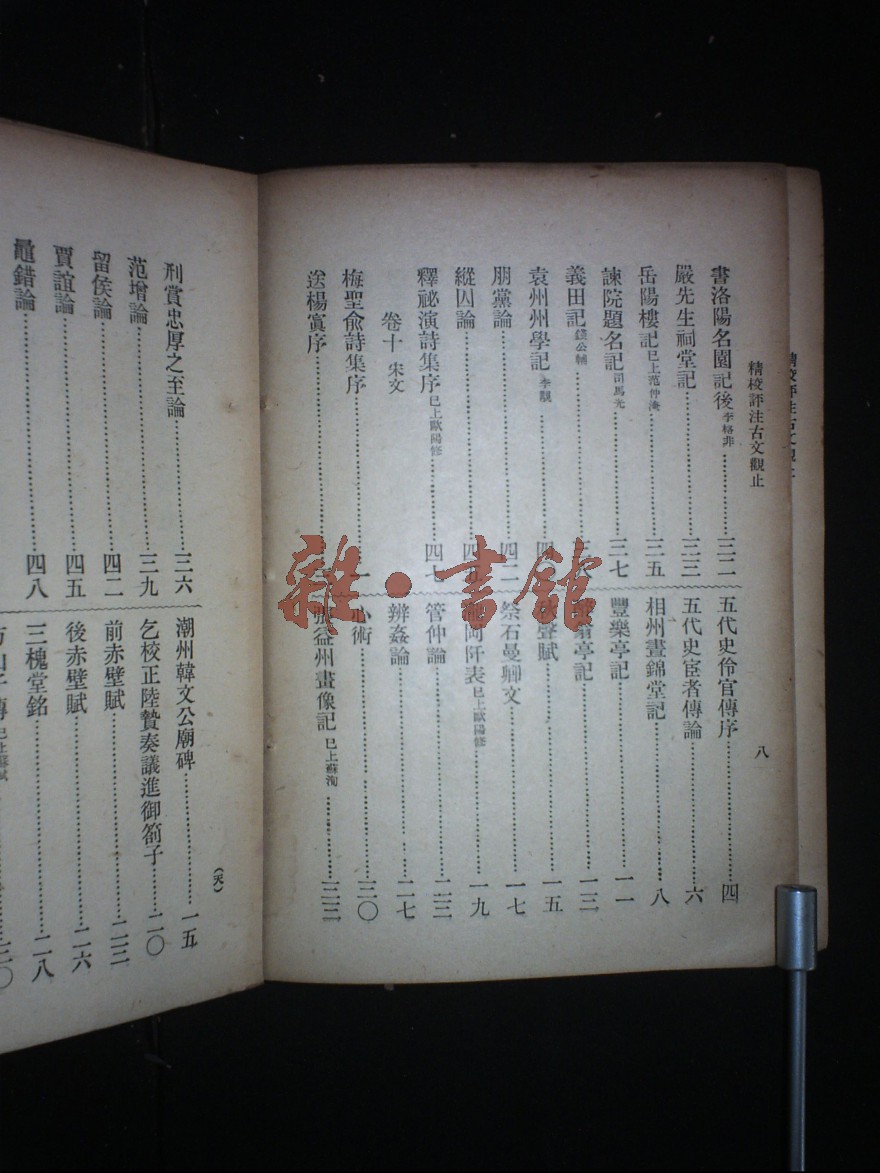 精校評注古文觀止
八
書洛陽名園記後 李格非 三二
嚴先生祠堂記 三三
岳陽樓記 已上范仲淹 三五
諫院題名記 司馬光 三七
義田記 錢公輔
袁州州學記 李覯
朋黨論 四二
縱囚論
釋祕演詩集序 已上歐陽修 四七
卷十 宋文
梅聖俞詩集序 一
送楊寘序
五代史伶官傳序 四
五代史宦者傳論 六
相州晝錦堂記 八
豐樂亭記 一一
亭記 一三
聲賦 一五
祭石曼卿文 一七
阡表 已上歐陽修 一九
管仲論 二三
辨姦論 二七
心術 三〇
張益州畫像記 已上蘇洵 三三
刑賞忠厚之至論 三六
范增論 三九
留侯論 四二
賈誼論 四五
鼂錯論 四八
潮州韓文公廟碑 一五
乞校正陸贄奏議進御劄子 二〇
前赤壁賦 二三
後赤壁賦 二六
三槐堂銘 二八
雜·書館